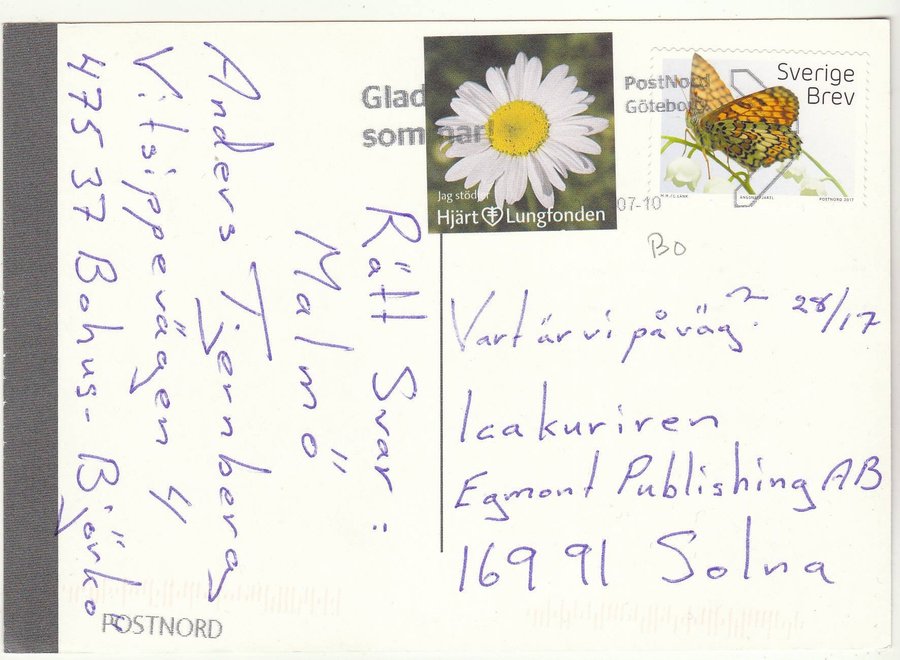 Glad
sommar!
Jag stödjer
Hjärt Lungfonden
PostNord
Göteborg
07-10
Sverige
Brev
POSTNORD 2017
BO
Rätt Svar:
Malmö
Anders Tjernberg
Vitsippevägen 4
475 37 Bohus-Björkö
Vart är vi på väg? 28/17
Icakuriren
Egmont Publishing AB
169 91 Solna
POSTNORD